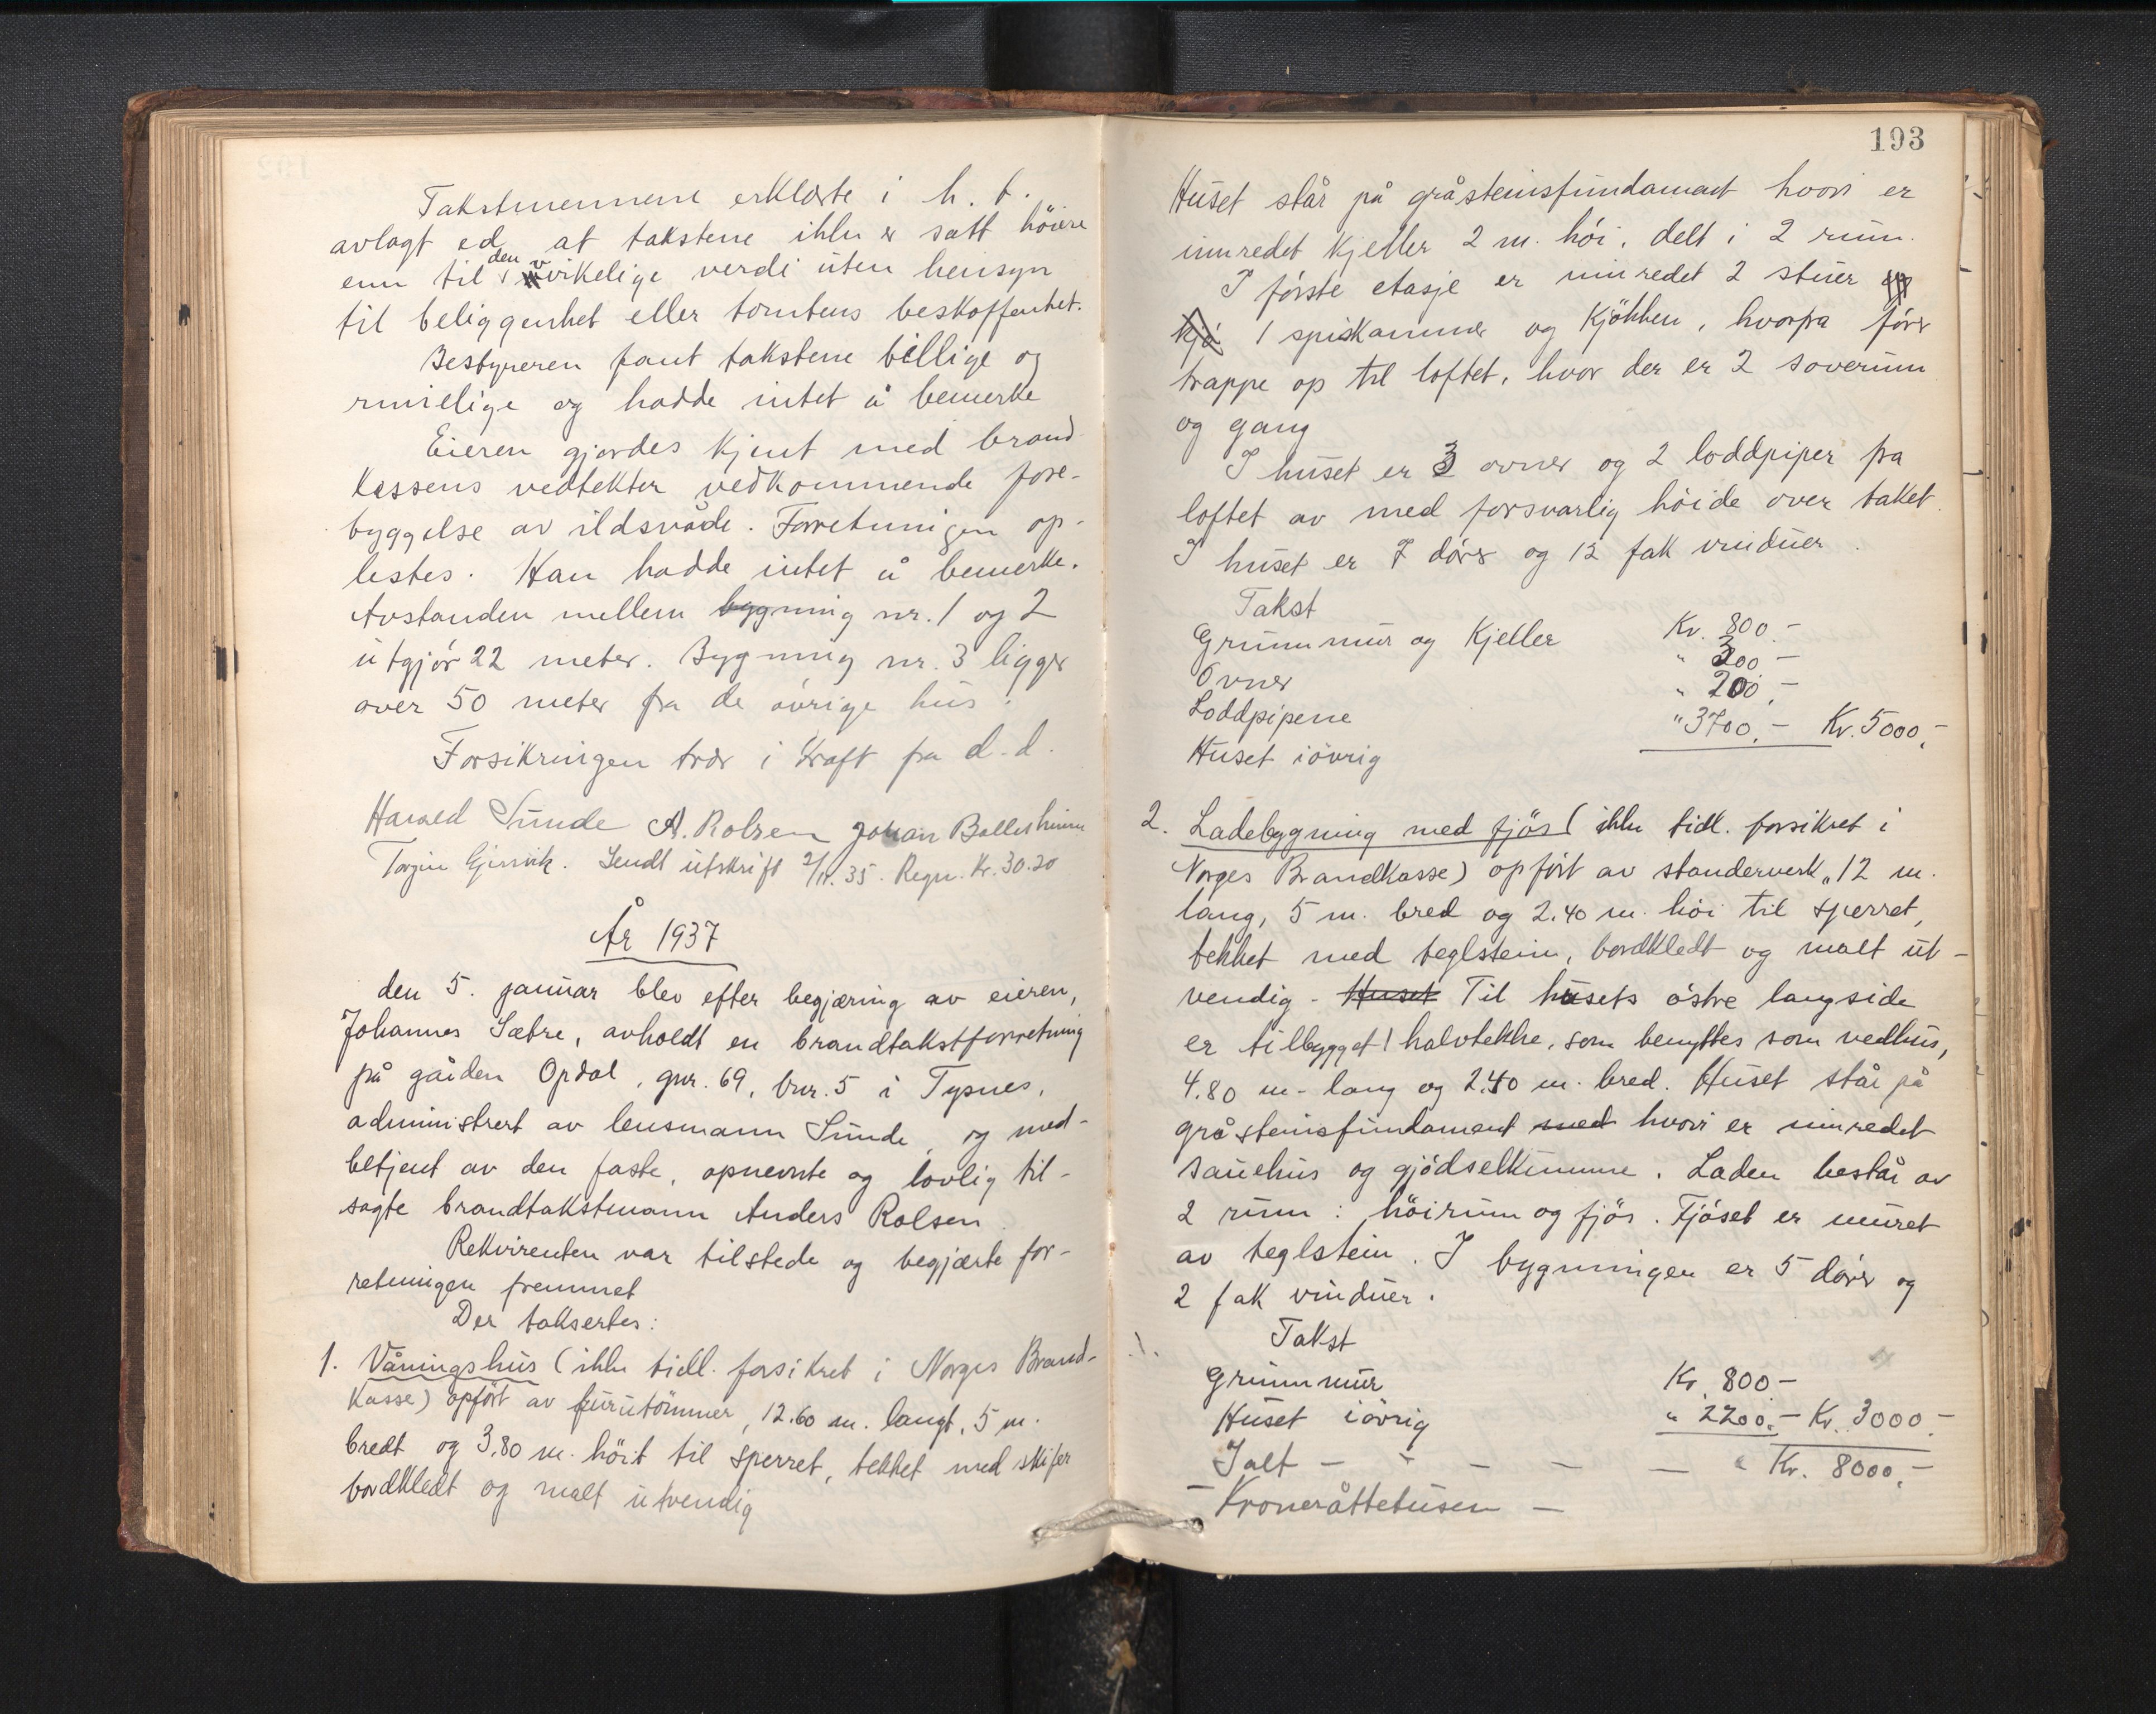 Takstmennene erklærte i h. t.
avlagt ed at takstene ikke er satt höiere
enn til den virkelige verdi uten hensyn
til beliggenhet eller tomtens beskaffenhet.
Bestyreren fant takstene billige og
rimelige og hadde intet å bemerke
Eieren gjordes kjent med brand-
kassens vedtekter vedkommende fore-
byggelse av ildsvåde. Forretningen op-
lestes. Han hadde intet å bemerke.
Avstanden mellem bygning nr. 1 og 2
utgjör 22 meter. Bygning nr. 3 ligger
over 50 meter fra de övrige hus.
Forsikringen trær i kraft fra d.d.
Harald Sunde A. Rolsen Johan
Sendt utskrift 2/11.35. Regn. Kr. 30.20
År 1937
den 5. januar blev efter begjæring av eieren,
Johannes Sæbre, avholdt en brandtakstforretning
på gården Opdal, gnr. 69, bnr. 5 i Tysnes,
administrert av lensmann Sunde, og med-
betjent av den faste, opnevnte og lovlig til-
sagte brandtakstmann Anders Rolsen.
Rekvirenten var tilstede og begjærte for-
retningen fremmet
Der takseres:
1. Våningshus (ikke tidl. forsikret i Norges Brand-
kasse) opfört av furutömmer, 12.60 m. langt, 5 m.
bredt og 3,80 m. höit til sperret, tekket med skifer
bordkledt og malt utvendig
193
Huset står på gråsteinsfundament hvori er
innredet kjeller 2 m. höi, delt i 2 rum.
I förste etasje er innredet 2 stuer
kjö 1 spiskammer og kjökken, hvorfra förer
trappe op til loftet, hvor der er 2 soverum
og gang
I huset er 3 ovner og 2 loddpiper fra
loftet av med forsvarlig höide over taket.
I huset er 7 dörer og 12 fak vinduer.
Takst
Grunnmur og kjeller Kr. 800.-
Ovner " 300 -
Loddpipene " 200,-
Huset iövrig " 3700,- Kr. 5000,-
2. Ladebygning med fjös (ikke tidl. forsikret i
Norges Brandkasse) opfört av standerverk, 12 m.
lang, 5 m. bred og 2.40 m. höi til sperret,
tekket med teglstein, bordkledt og malt ut-
vendig - Huset Til husets östre langside
er tilbygget 1 halvtekke, som benyttes som vedhus,
4.80 m. lang og 2.40 m. bred. Huset står på
gråsteinsfundament med hvori er innredet
sauehus og gjödselkumme. Laden består av
2 rum: höirum og fjös. Fjöset er muret
av teglstein. I bygningen er 5 dörer og
2 fak vinduer.
Takst
Grunnmur Kr. 800 -
Huset iövrig " 2200.- Kr. 3000.-
Ialt - - - - - Kr. 8000,-
- Kroneråttetusen -